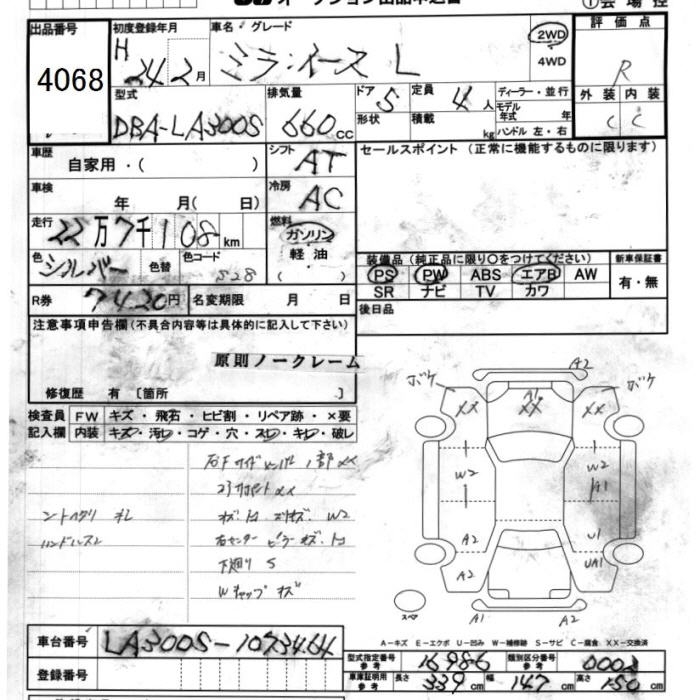 出品番号 初度登録年月 車名 グレード ①会場控
4068
H 24 2月 ミライース L 2WD 4WD
評価点 R
外装 内装
C C
型式 排気量 ドア 5 定員 4人 ディーラー・並行
DBA-LA300S 660cc 形状 積載 kg モデル年式 年 ハンドル 左・右
車歴 自家用・( ) シフト AT セールスポイント (正常に機能するものに限ります)
車検 年 月( 日) 冷房 AC
走行 22万7千108km 燃料 ガソリン 軽油・( )
色 シルバー 色替 色コード S28
装備品 (純正品に限り○をつけてください) 新車保証書
PS PW ABS エアB AW 有・無
SR ナビ TV カワ
R券 7420円 名変期限 月 日 後日品
注意事項申告欄(不具合内容等は具体的に記入して下さい)
原則ノークレーム
修復歴 有 [箇所 ]
検査員 FW キズ・飛石・ヒビ割・リペア跡・×要
記入欄 内装 キズ・汚レ・コゲ・穴・スレ・キレ・破レ
ボケ A2 ボケ
XX A1 XX XX
W2 W2 A1
A2 U1
A2 UA1
スペア A1 A2
コアサポート XX
ハンドルスレ
下廻り S
Wキャップ キズ
A-キズ E-エクボ U-凹み W-補修跡 S-サビ C-腐食 XX-交換済
車台番号 LA300S-1073464
登録番号
型式指定番号 参考 16986 類別区分番号 参考 0002
車庫証明用 参考 長さ 339cm 幅 147cm 高さ 150cm